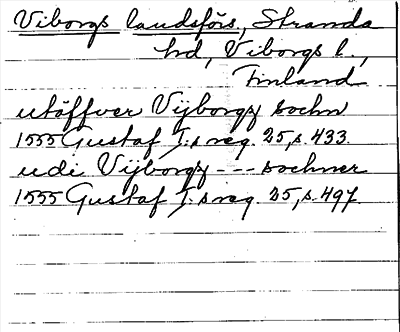 Viborgs landsförs., Stranda
hd, Viborgs l.,
Finland
utöffver Vijborgz sochn
1555 Gustaf I:s reg. 25, s. 433.
udi Vijborgz --- sochner
1555 Gustaf I:s reg. 25, s. 497